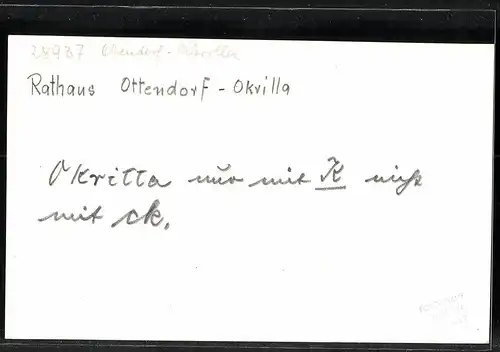 28937 Ottendorf-Okrilla
Rathaus Ottendorf-Okrilla
Okrilla nur mit K nicht
mit ck.